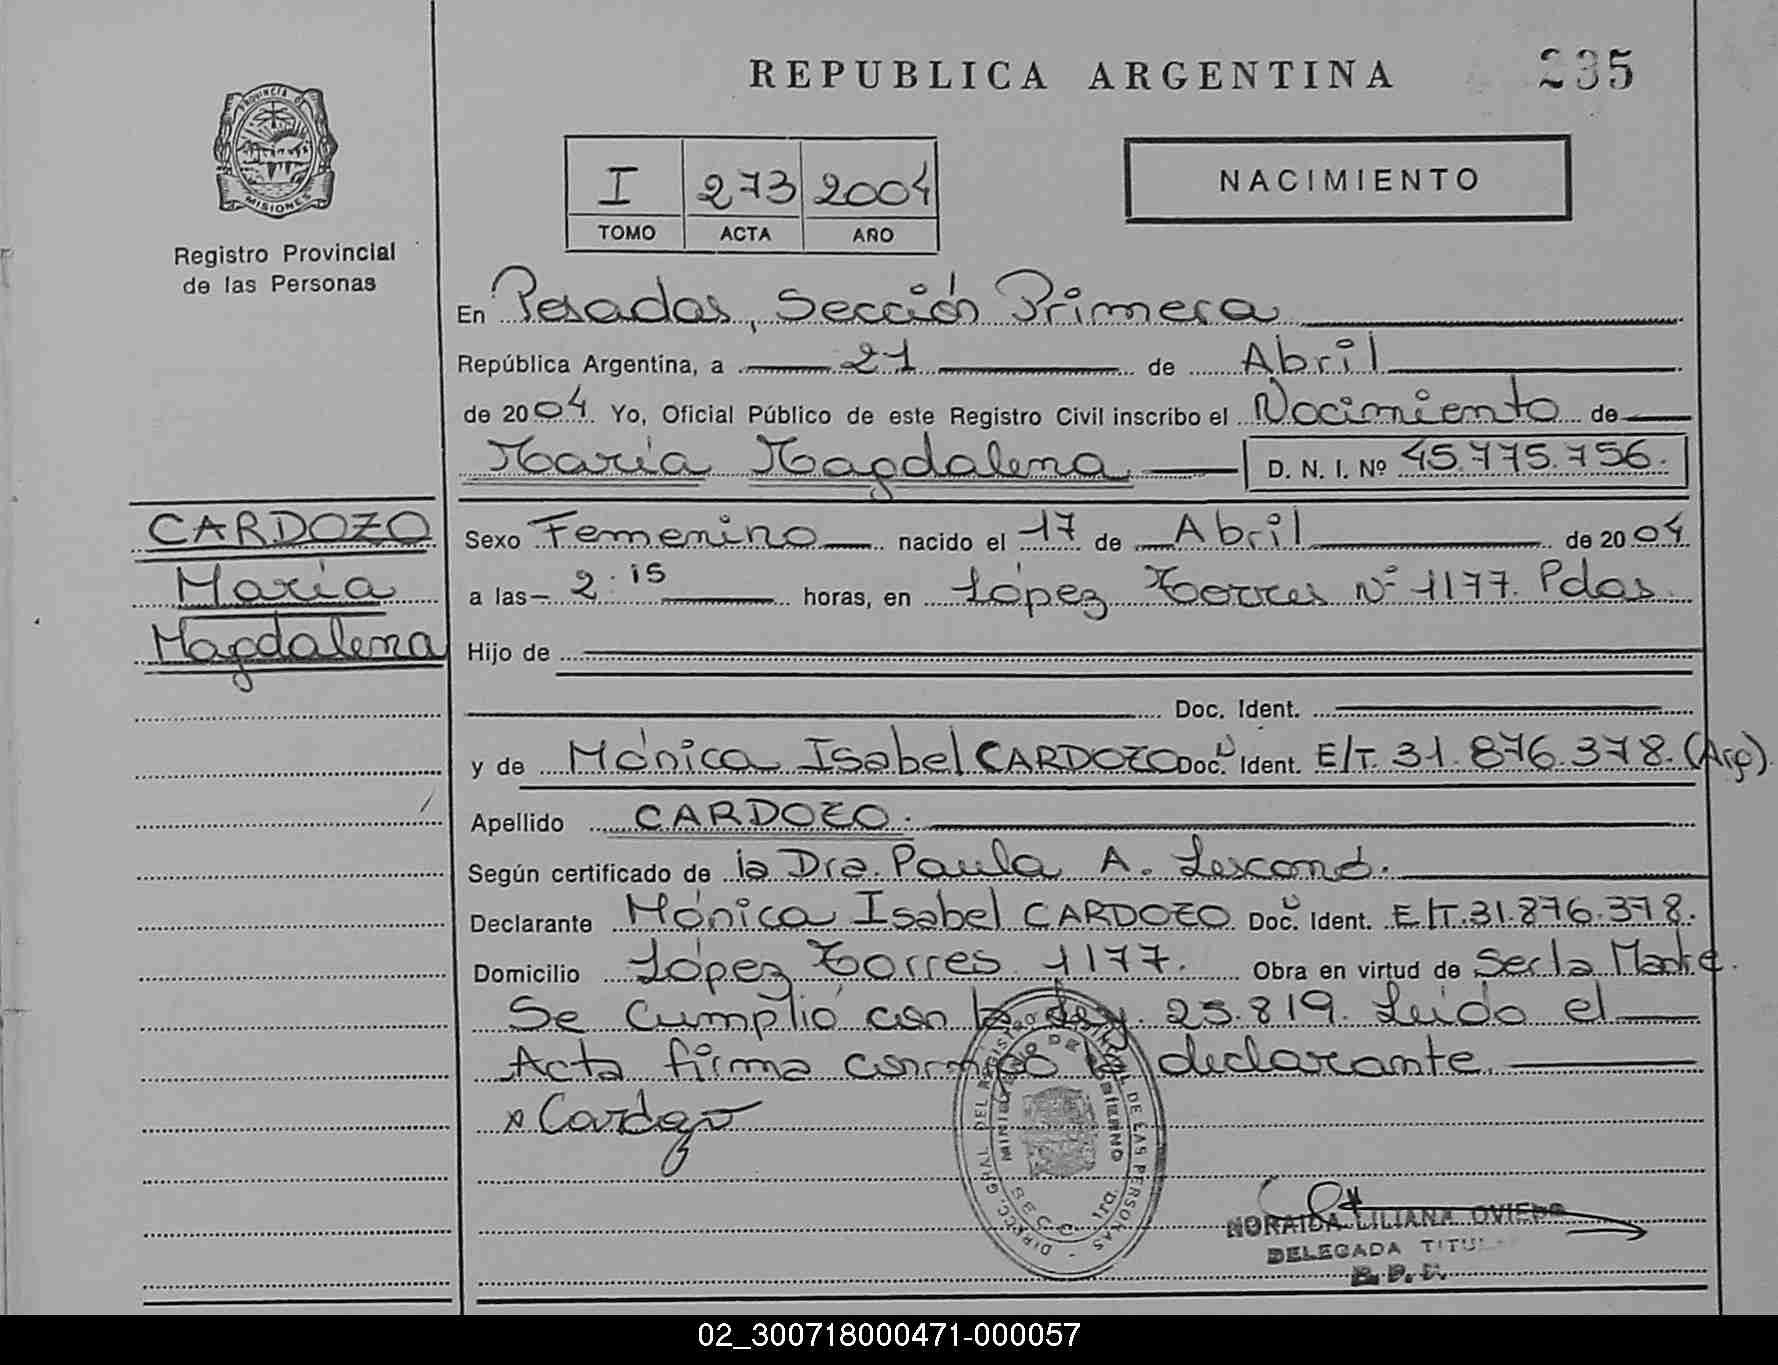 REPUBLICA ARGENTINA
235
PROVINCIA DE
MISIONES
Registro Provincial
de las Personas
I 273 2004
TOMO ACTA AÑO
NACIMIENTO
En Posadas, Sección Primera
República Argentina, a 21 de Abril
de 2004. Yo, Oficial Público de este Registro Civil inscribo el Nacimiento de
María Magdalena D. N. I. Nº 45.775.756.
CARDOZO
María
Magdalena
Sexo Femenino nacido el 17 de Abril de 2004
a las 2:15 horas, en López Torres Nº 1177. Pdas.
Hijo de
Doc. Ident.
y de Mónica Isabel CARDOZO Doc. Ident. E/T. 31.876.378. (Arg)
Apellido CARDOZO.
Según certificado de la Dra. Paula A.
Declarante Mónica Isabel CARDOZO Doc. Ident. E/T. 31.876.378.
Domicilio López Torres 1177. Obra en virtud de Ser la Madre.
Se cumplió con la Ley. 23.819. Leido el
Acta firma conmigo la declarante.
x Cardozo
DIRECC. GRAL DEL REGISTRO PROVINCIAL DE LAS PERSONAS
MINISTERIO DE GOBIERNO
SECC. 1ra.
NORAIDA LILIANA OVIEDO
DELEGADA TITULAR
02_300718000471-000057